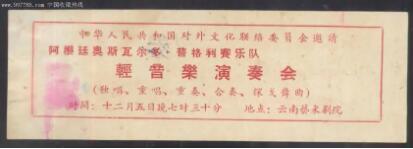 www.997788.com 中国收藏热线
中华人民共和国对外文化联络委员会邀请
阿根廷奥斯瓦尔多·普格利赛乐队
輕音樂演奏会
(独唱、重唱、重奏、合奏、探戈舞曲)
时间：十二月五日晚七时三十分 地点：云南艺术剧院